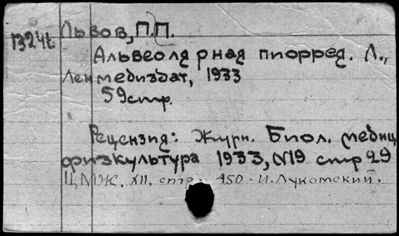 Львов, П.П.
1324б
Альвеолярная пиоррея. Л.,
Ленмедиздат, 1933
59стр.
Рецензия: Журн. Биол. медиц.
физкультура 1933, №19 стр 29
Ц.М.Ж. XII, стр. 450 - И.Лукомский.